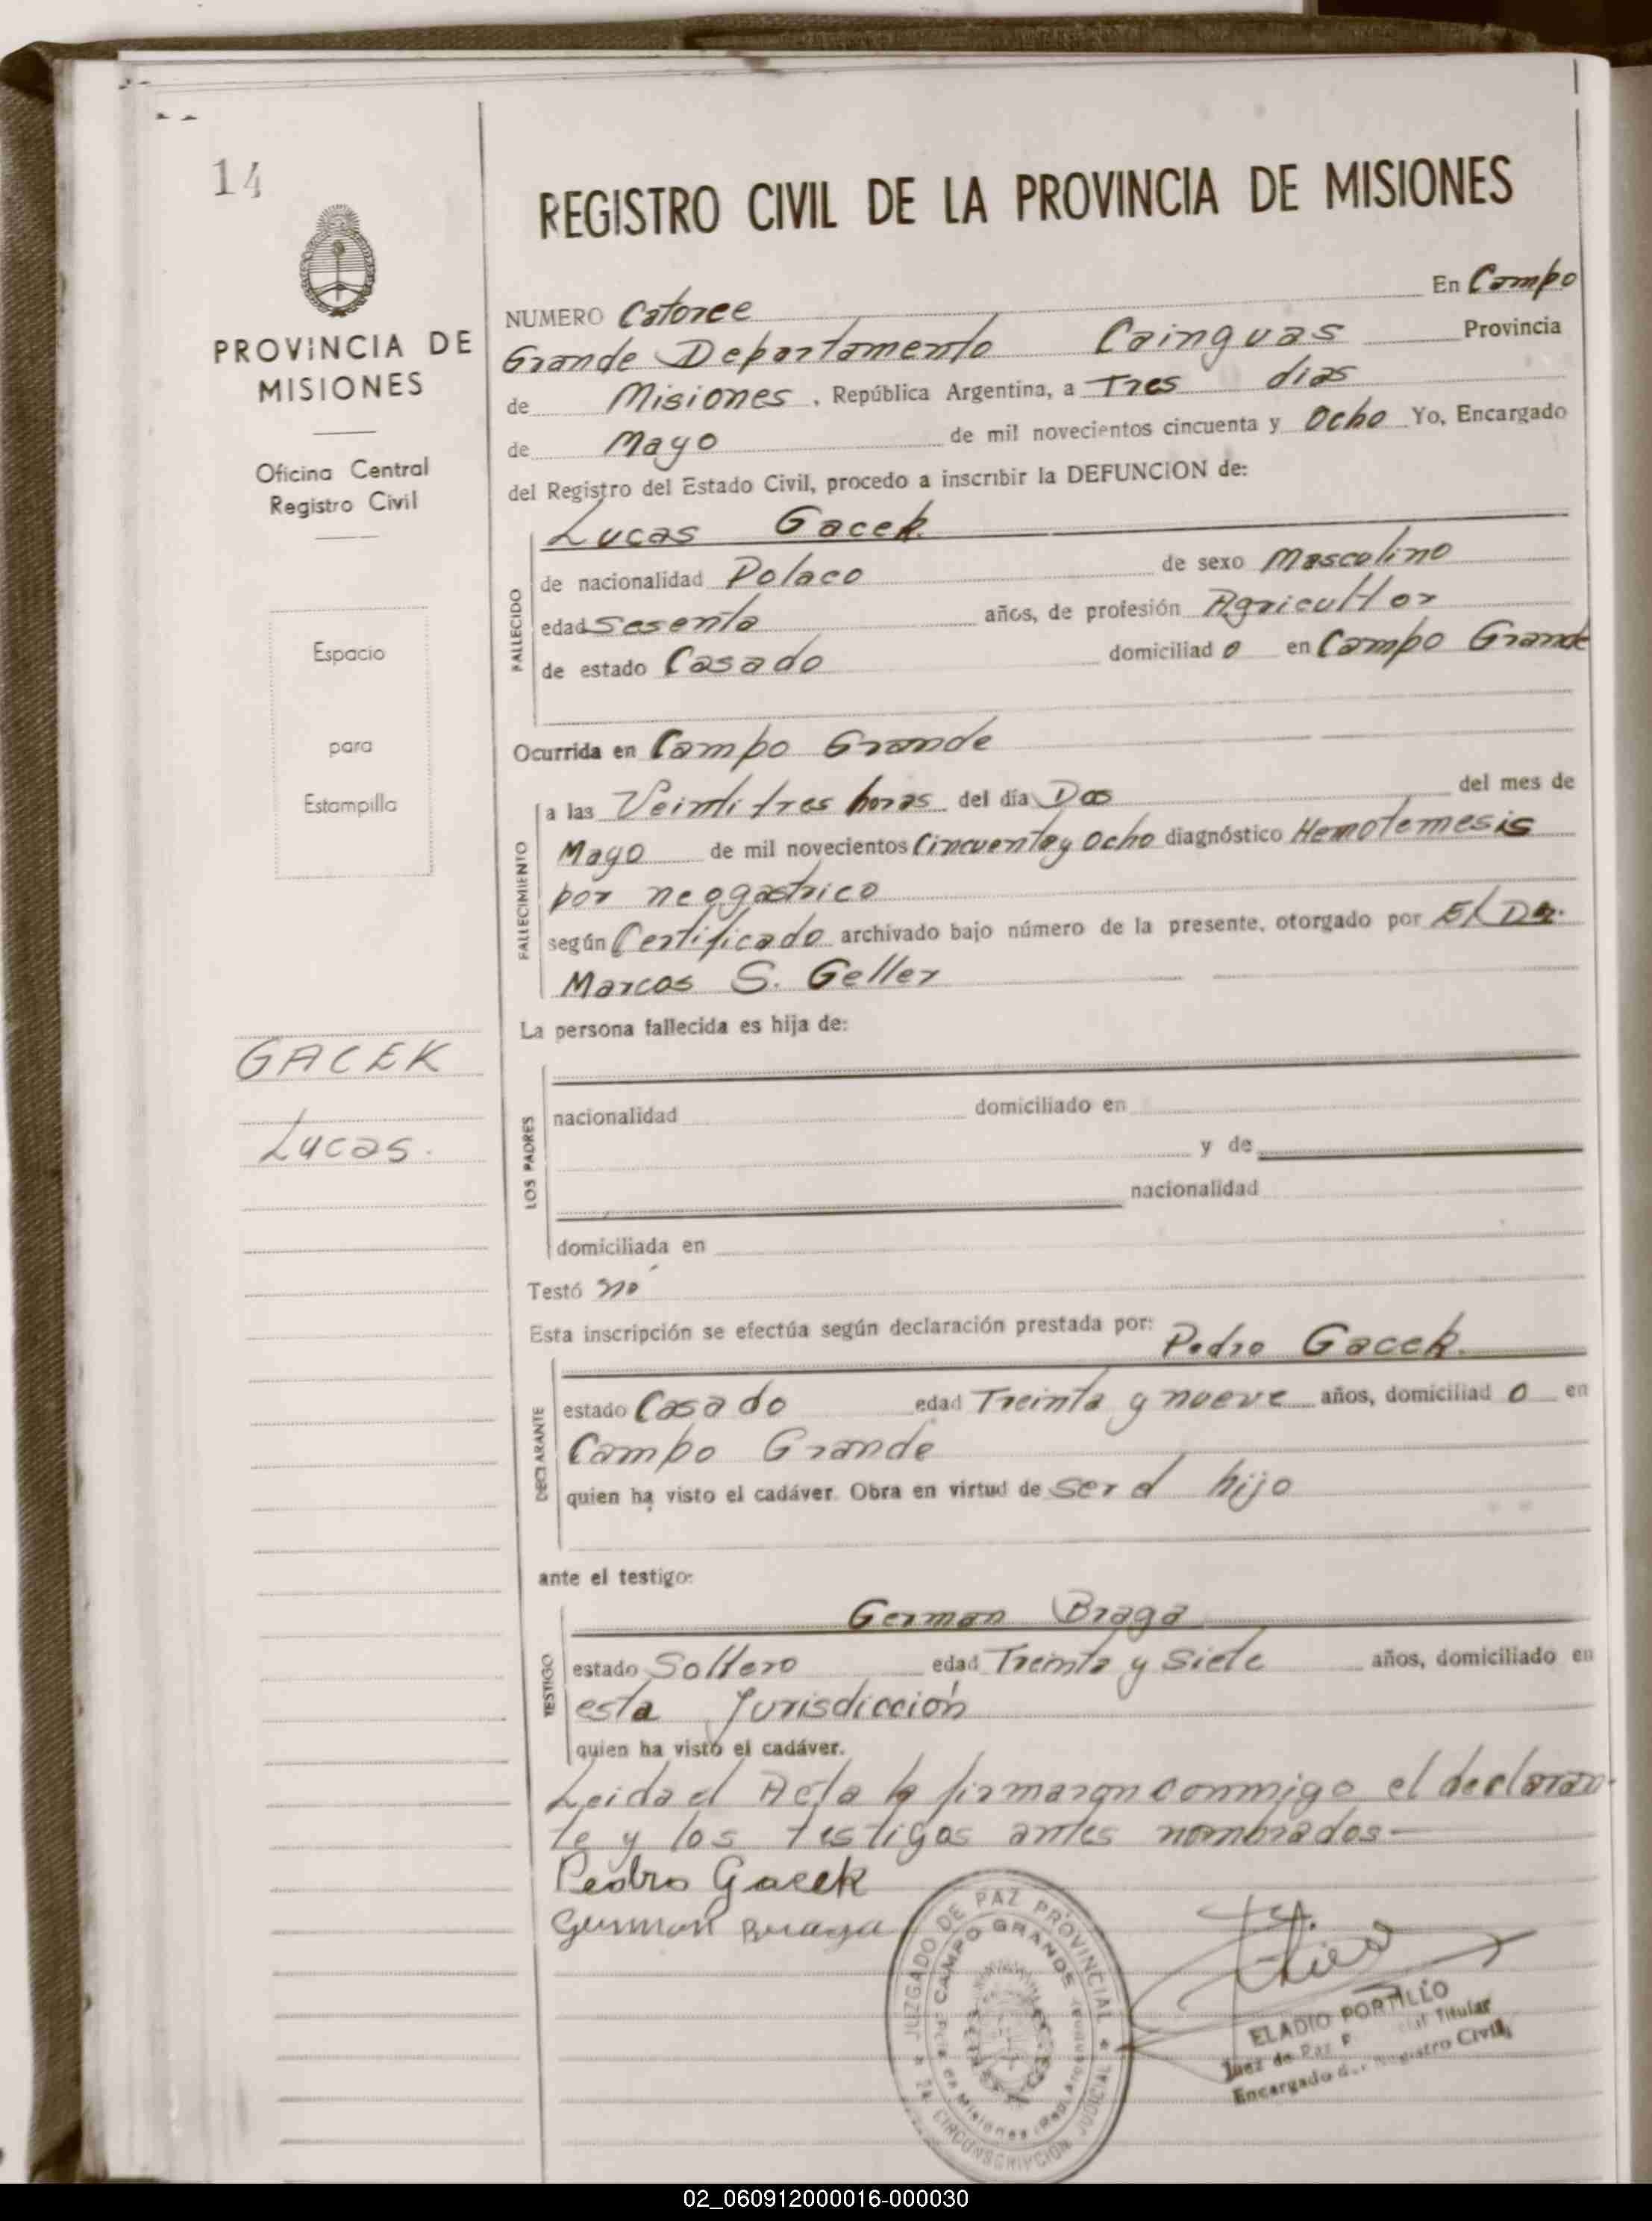 14
PROVINCIA DE
MISIONES
Oficina Central
Registro Civil
Espacio
para
Estampilla
GACEK
Lucas.
REGISTRO CIVIL DE LA PROVINCIA DE MISIONES
NUMERO Catorce En Campo
Grande Departamento Cainguas Provincia
de Misiones, República Argentina, a Tres dias
de Mayo de mil novecientos cincuenta y Ocho Yo, Encargado
del Registro del Estado Civil, procedo a inscribir la DEFUNCION de:
Lucas Gacek.
FALLECIDO
de nacionalidad Polaco de sexo Masculino
edad Sesenta años, de profesión Agricultor
de estado Casado domiciliad o en Campo Grande
Ocurrida en Campo Grande
FALLECIMIENTO
a las Veinti tres horas del día Dos del mes de
Mayo de mil novecientos Cincuenta y Ocho diagnóstico Hemotemesis
por neogastrico
según Certificado archivado bajo número de la presente, otorgado por El Dr.
Marcos S. Geller
La persona fallecida es hija de:
LOS PADRES
nacionalidad domiciliado en
y de
nacionalidad
domiciliada en
Testó no
Esta inscripción se efectúa según declaración prestada por:
Pedro Gacek.
DECLARANTE
estado Casado edad Treinta y nueve años, domiciliad o en
Campo Grande
quien ha visto el cadáver. Obra en virtud de ser el hijo
ante el testigo:
German Braga
TESTIGO
estado Soltero edad Treinta y Siete años, domiciliado en
esta Jurisdicción
quien ha visto el cadáver.
Leida el Acta la firmaron conmigo el declaran-
te y los testigos antes nombrados-
Pedro Gacek
German Braga
JUZGADO DE PAZ PROVINCIAL
CAMPO GRANDE
Pcia. de Misiones (Rep. Argentina)
2a. CIRCUNSCRIPCION JUDICIAL
ELADIO PORTILLO
Juez de Paz Titular
Encargado del Registro Civil
02_060912000016-000030